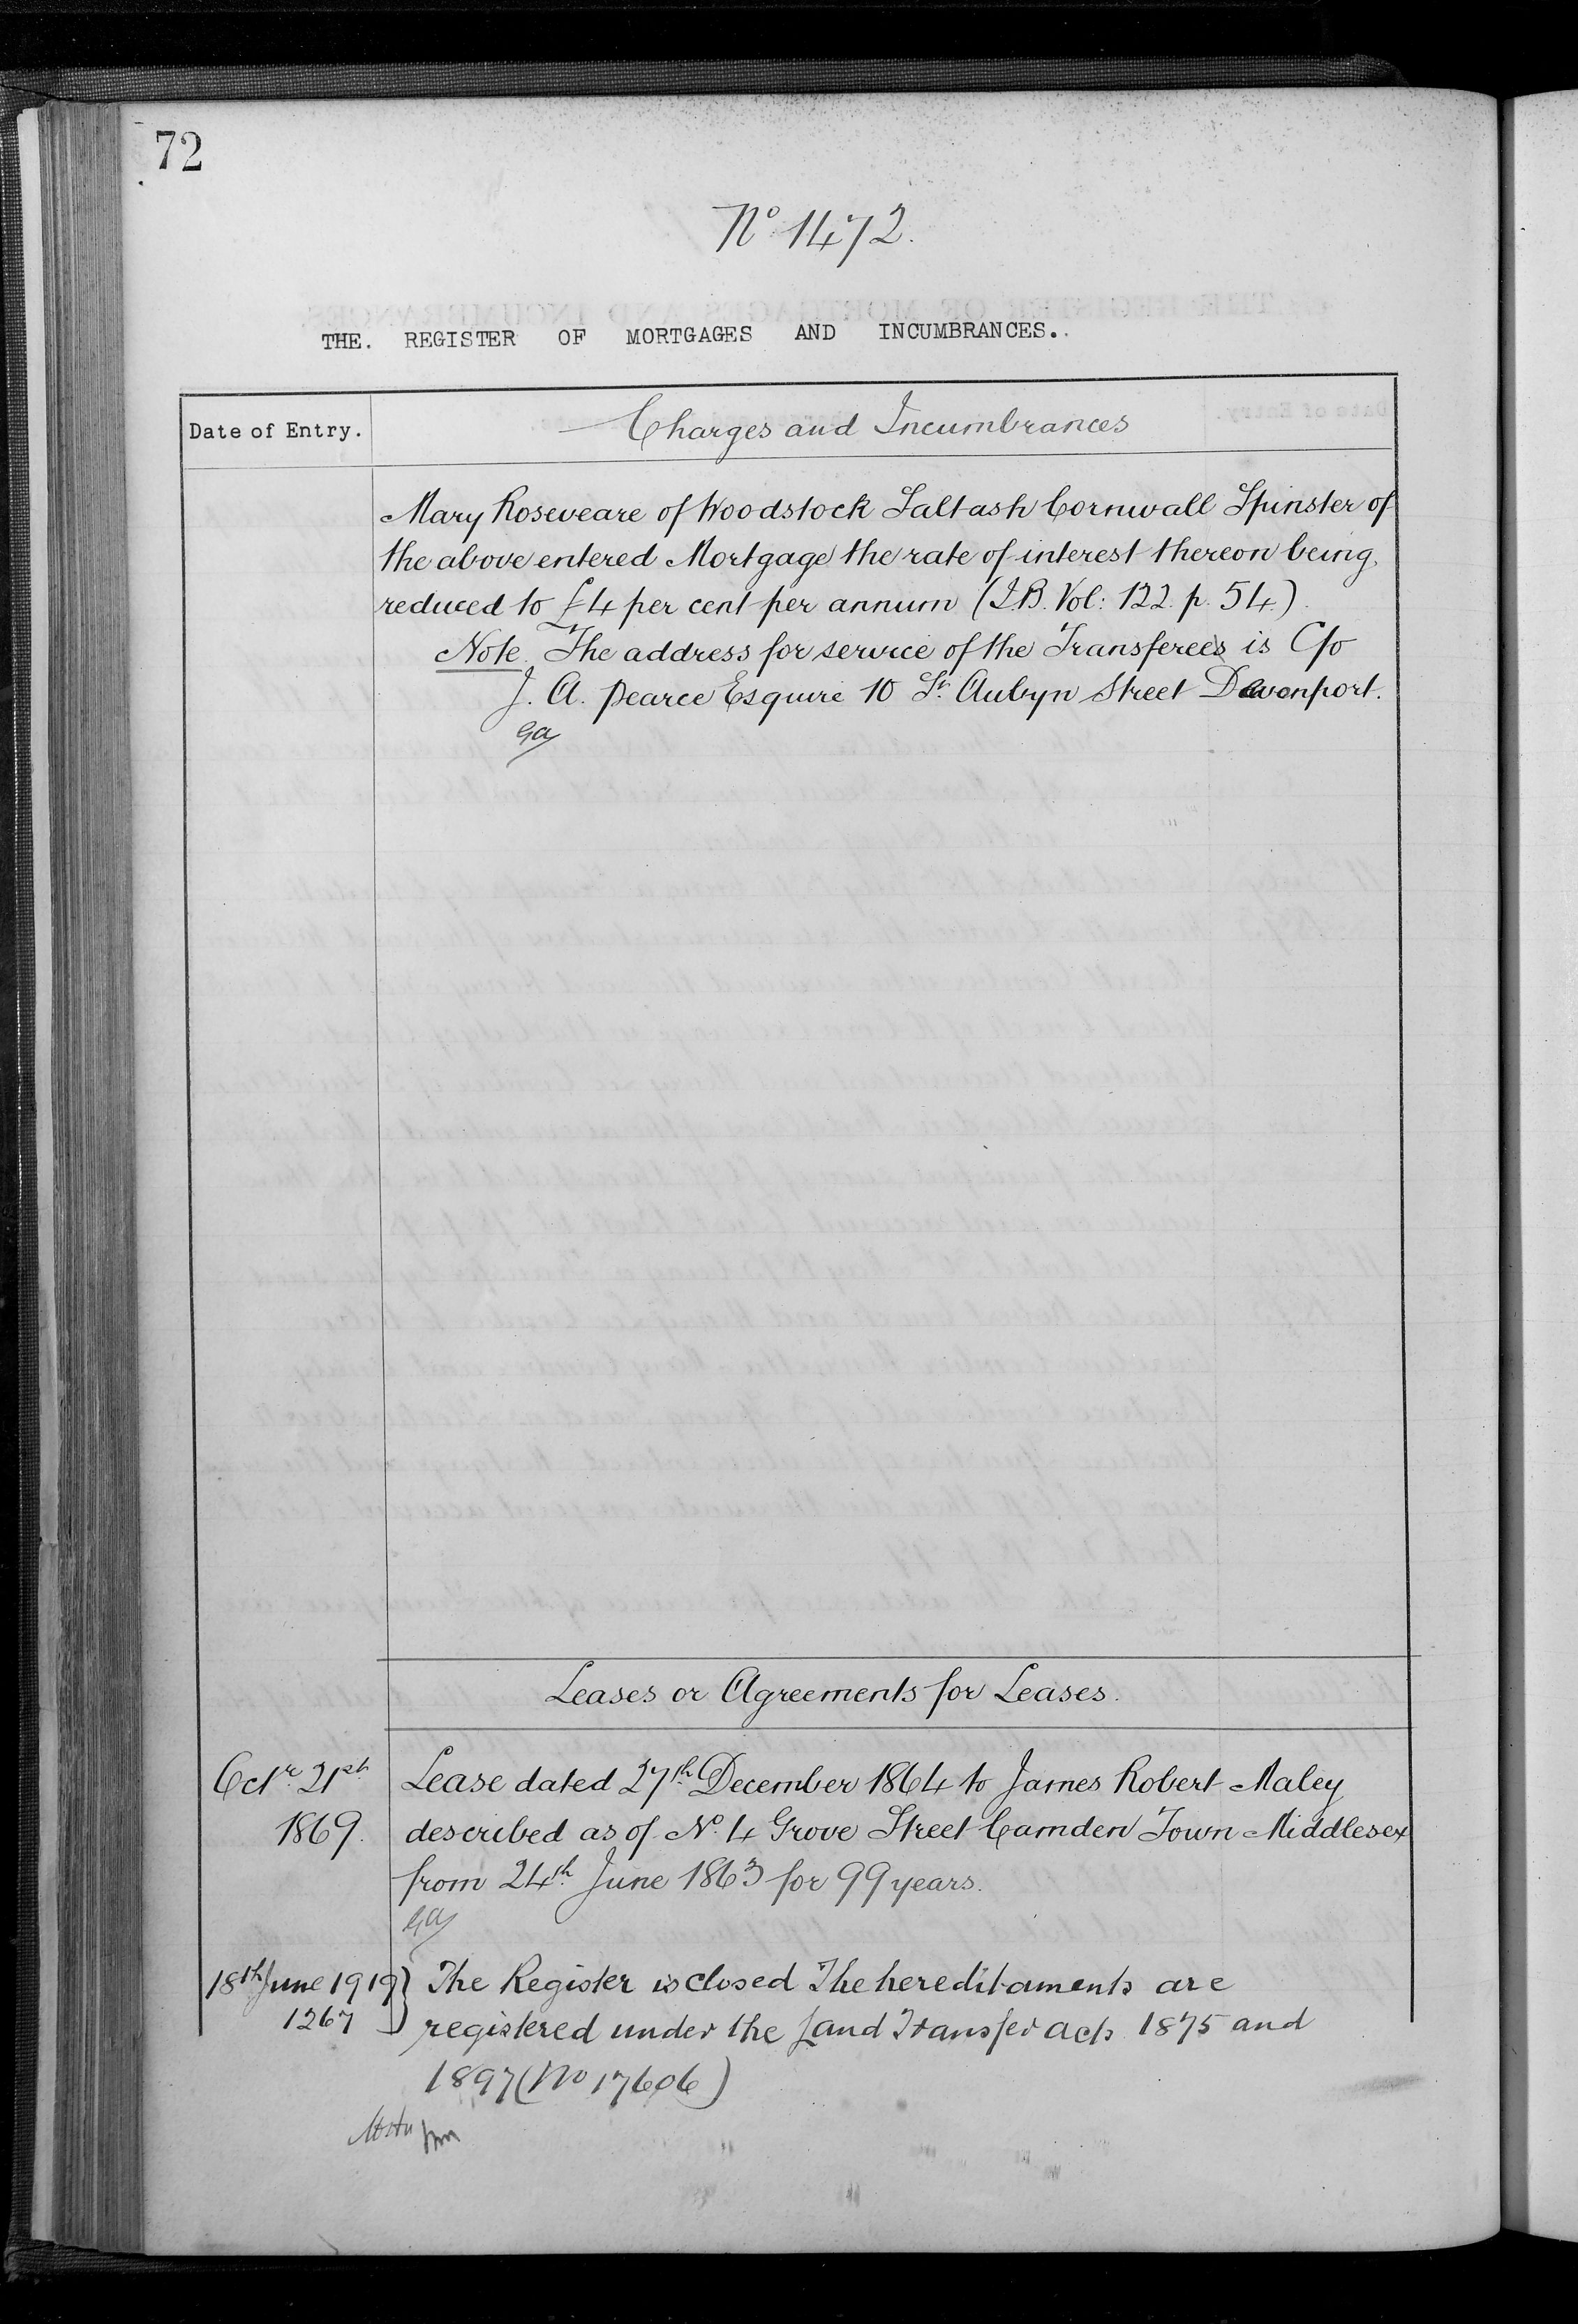 72
No 1472.
THE. REGISTER OF MORTGAGES AND INCUMBRANCES.
Date of Entry.
Charges and Incumbrances
Mary Roseveare of Woodstock Saltash Cornwall Spinster of
the above entered Mortgage the rate of interest thereon being
reduced to £4 per cent per annum (I.B. Vol: 122. p. 54).
Note. The address for service of the Transferees is C/o
J. A. Pearce Esquire 10 St. Aubyn Street Devonport.
Ga
Leases or Agreements for Leases.
Octr. 21st
1869.
Lease dated 27th December 1864 to James Robert Maley
described as of No. 4 Grove Street Camden Town Middlesex
from 24th June 1863 for 99 years.
Ga
18th June 1919
1267
The Register is closed The hereditaments are
registered under the Land Transfer Acts 1875 and
1897 (No 17606)